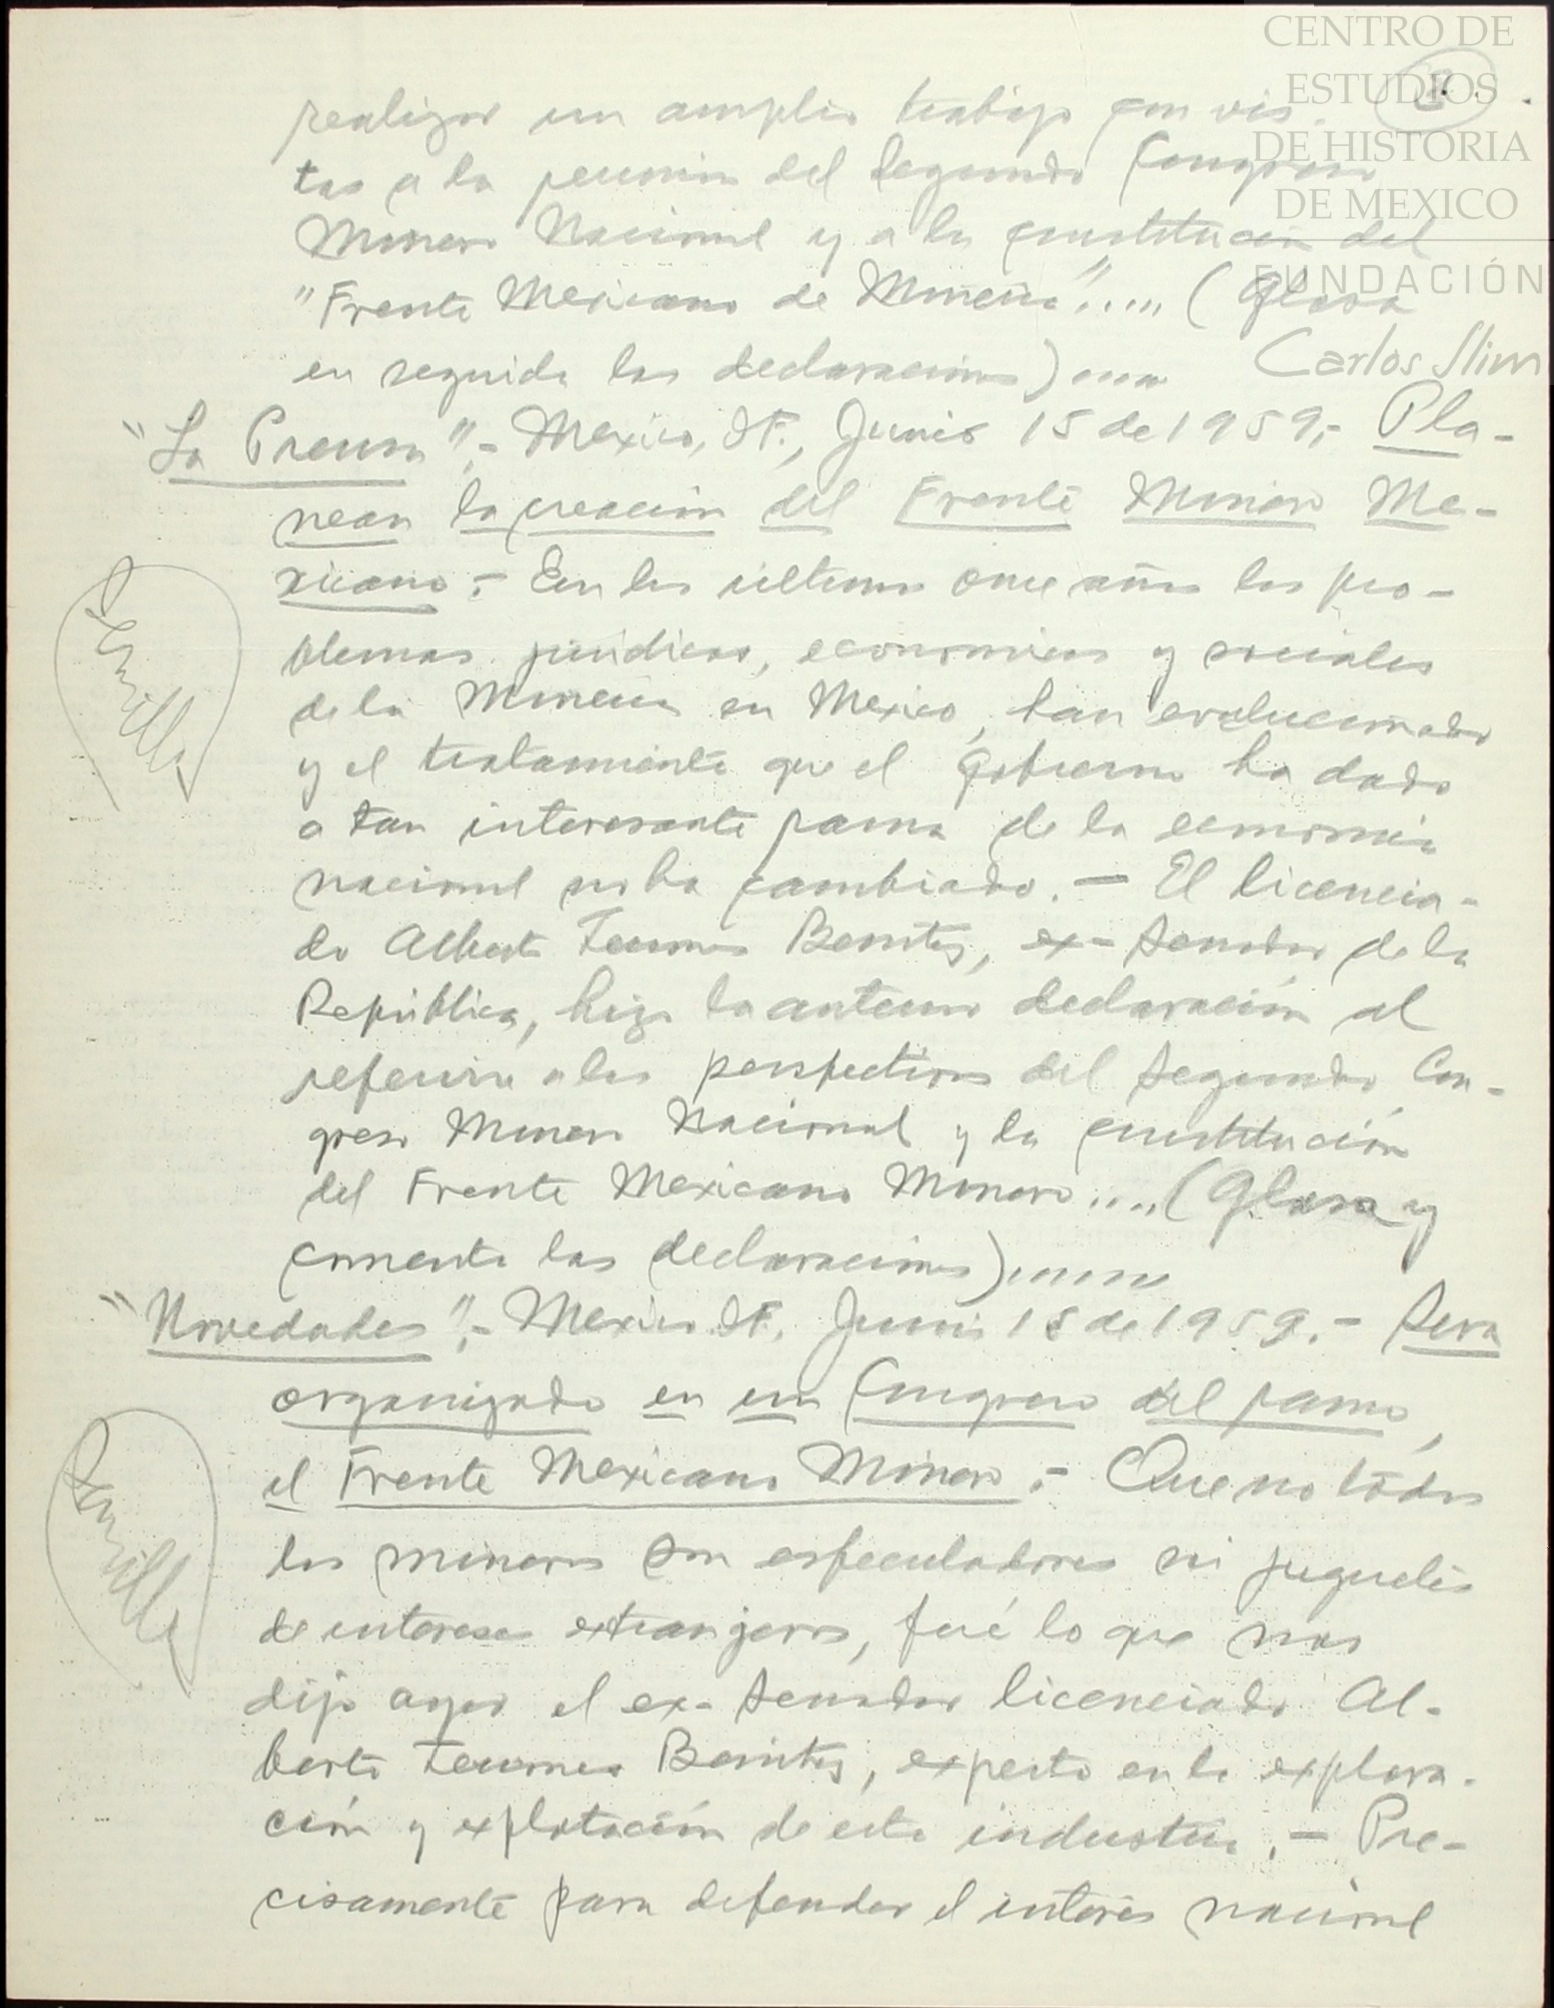 CENTRO DE
ESTUDIOS
DE HISTORIA
DE MEXICO
FUNDACIÓN
Carlos Slim
realizar un amplio trabajo con vis-
tas a la reunión del Segundo Congreso
Minero Nacional y a la constitución del
"Frente Mexicano de Minería"..... (Glosa
en seguida las declaraciones)....
"La Prensa".- Mexico, D.F., Junio 15 de 1959.- Pla-
nean la creación del Frente Minero Me-
xicano.- En los ultimos once años los pro-
blemas juridicos, economicos y sociales
de la Minería en Mexico, han evolucionado
y el tratamiento que el Gobierno ha dado
a tan interesante rama de la economía
nacional no ha cambiado.- El licencia-
do Alberto Terrones Benitez, ex-Senador de la
República, hizo la anterior declaración al
referirse a las perspectivas del Segundo Con-
greso Minero Nacional y la constitución
del Frente Mexicano Minero.... (Glosa y
comenta las declaraciones)......
"Novedades".- Mexico D.F. Junio 15 de 1959.- Sera
organizado en un Congreso del ramo,
el Frente Mexicano Minero.- Que no todos
los mineros son especuladores ni juguetes
de intereses extranjeros, fué lo que nos
dijo ayer el ex-Senador licenciado Al-
berto Terrones Benitez, experto en la explora-
ción y explotación de esta industria.- Pre-
cisamente para defender el interés nacional